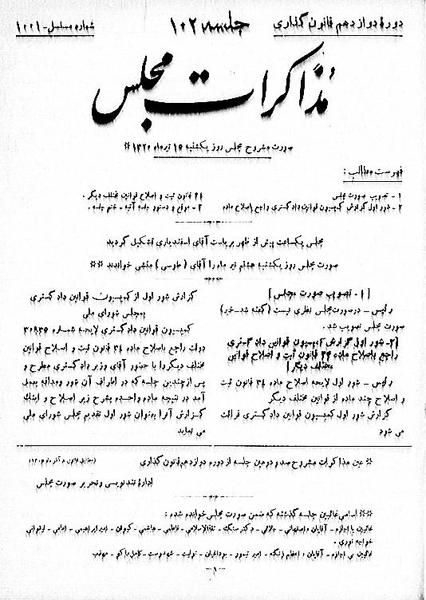 دورهٔ دوازدهم قانون گذاری
جلسه ۱۰۲
شماره مسلسل - ۱۲۲۱
مذاکرات مجلس
صورت مشروح مجلس روز یکشنبه ۱۵ تیر ماه ۱۳۲۰ **
فهرست مطالب :
۱ - تصویب صورت مجلس
۲ - شور اول گزارش کمیسیون قوانین دادگستری راجع باصلاح ماده
۳۴ قانون ثبت و اصلاح قوانین مختلف دیگر .
۳ - موقع و دستور جلسه آتیه - ختم جلسه .
مجلس یکساعت پیش از ظهر بریاست آقای اسفندیاری تشکیل گردید
صورت مجلس روز یکشنبه هشتم تیر ماه را آقای (طوسی) منشی خواندند **
[۱ - تصویب صورت مجلس]
رئیس - در صورت مجلس نظری نیست (گفته شد - خیر)
صورت مجلس تصویب شد .
[۲ - شور اول گزارش کمیسیون قوانین دادگستری
راجع باصلاح ماده ۳۴ قانون ثبت و اصلاح قوانین
مختلف دیگر]
رئیس - شور اول لایحه اصلاح ماده ۳۴ قانون ثبت
و اصلاح چند ماده از قوانین مختلف دیگر
گزارش شور اول کمیسیون قوانین دادگستری قرائت
می شود
گزارش شور اول از کمیسیون قوانین دادگستری
بمجلس شورای ملی
کمیسیون قوانین دادگستری لایحه شماره
دولت راجع باصلاح ماده ۳۴ قانون ثبت و اصلاح قوانین
مختلف دیگر را با حضور آقای وزیر دادگستری مطرح و
پس از چندین جلسه که در اطراف آن شور و مداقه بعمل
آمد در نتیجه ماده واحده بشرح زیر اصلاح و اینک
گزارش آنرا بعنوان شور اول تقدیم مجلس شورای ملی
می نماید
** عین مذاکرات مشروح صد و دومین جلسه از دوره دوازدهم قانون گذاری
اداره تندنویسی و تحریر صورت مجلس
** اسامی غائبین جلسه گذشته که ضمن صورت مجلس خوانده شده :
غائبین با اجازه - آقایان :
غائبین بی اجازه - آقایان :